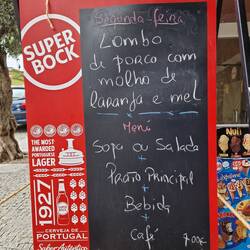 SUPER
BOCK
THE MOST
AWARDED
PORTUGUESE
LAGER
1927
CERVEJA DE
PORTUGAL
Sabor Autêntico
Segunda-feira
Lombo
de porco com
molho de
laranja e mel
Menu
Sopa ou Salada
+
Prato Principal
+
Bebida
+
Café